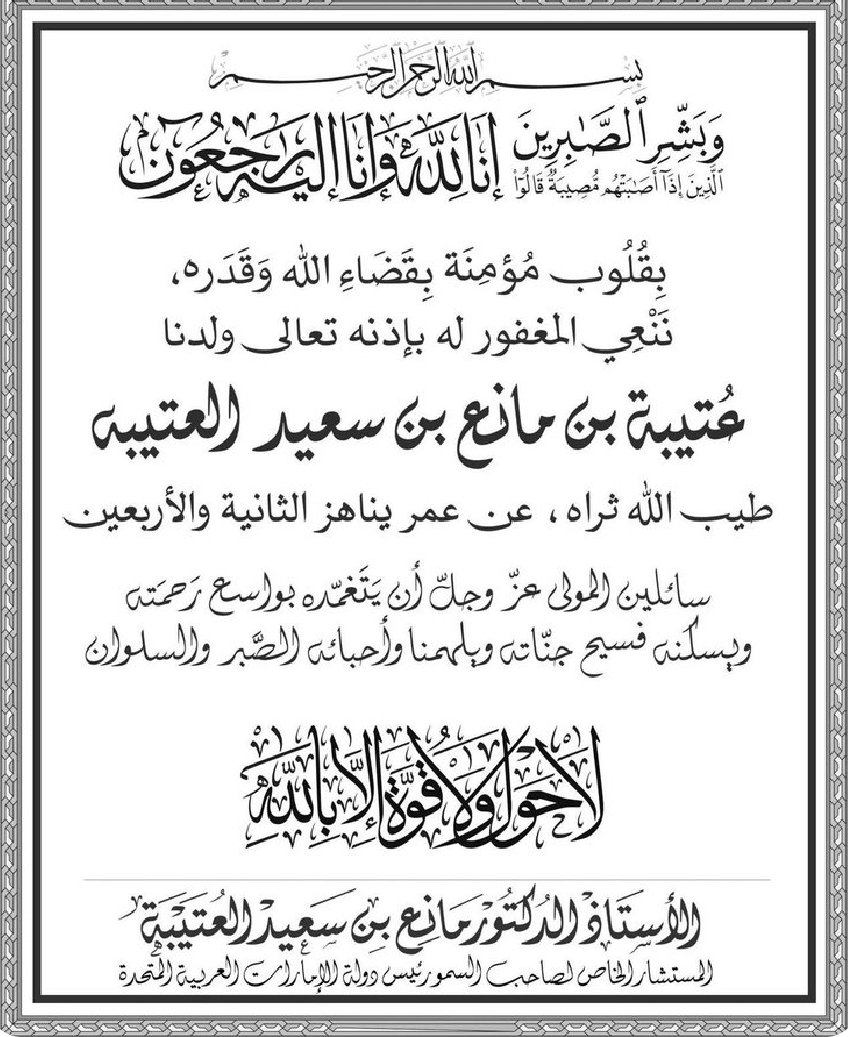 بِسْمِ اللهِ الرَّحْمٰنِ الرَّحِيْمِ
وَبَشِّرِ ٱلصَّٰبِرِينَ
ٱلَّذِينَ إِذَآ أَصَٰبَتۡهُم مُّصِيبَةٞ قَالُوٓاْ
إنَا لِلّٰهِ وَإنَا إِلَيْهِ رَاجِعُونَ
بِقُلُوب مُؤمِنَة بِقَضَاءِ الله وَقَدَره،
نَنْعِي المغفور له بإذنه تعالى ولدنا
عُتيبة بن مانع بن سعيد العتيبه
طيب الله ثراه، عن عمر يناهز الثانية والأربعين
سائلين المولى عزّ وجلّ أن يَتَغمّده بواسع رَحمَته
ويسكنه فسيح جنّاته ويلهمنا وأحبائه الصَّبر والسلوان
لَا حَوْلَ وَلَا قُوَّةَ إِلَّا بِاللّٰهِ
الأستَاذ الدُكتُورْ مَانِع بِن سَعِيدْ العُتَيْبَة
المستشار الخاص لصاحب السمو رئيس دولة الإمارات العربية المتحدة